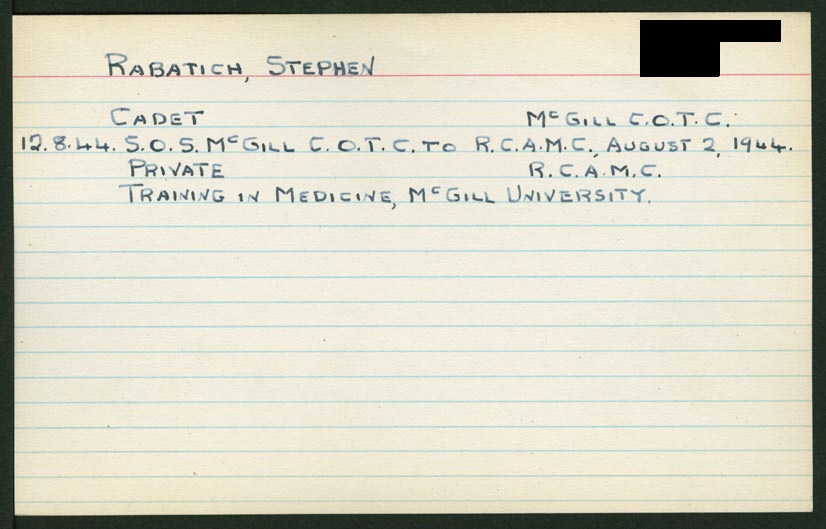 RABATICH, STEPHEN
CADET McGILL C.O.T.C.
12.8.44. S.O.S. McGILL C.O.T.C. TO R.C.A.M.C., AUGUST 2, 1944.
PRIVATE R.C.A.M.C.
TRAINING IN MEDICINE, McGILL UNIVERSITY.